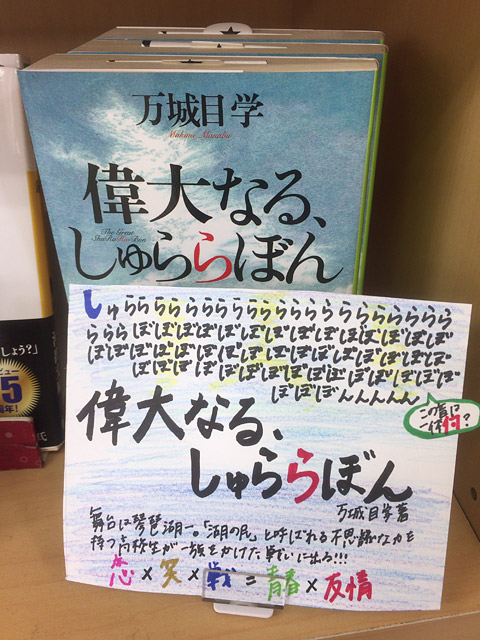 万城目学
Makime Manabu
偉大なる、
The Great
ShuRaRaBon
しゅららぼん
しょう?」
ビュー
5
周年!
氏
しゅららららららららららららららららららららら
らららぼぼぼぼぼぼぼぼぼぼぼぼぼぼぼぼぼぼ
ぼぼぼぼぼぼぼぼぼぼぼぼぼぼぼぼぼぼぼぼぼ
ぼぼぼぼぼぼぼぼぼぼぼぼぼぼぼぼぼぼ
ぼぼぼぼんんんんん
この音は
一体何?
偉大なる、
しゅららぼん
万城目学著
舞台は琵琶湖―。「湖の民」と呼ばれる不思議な力を
持つ高校生が一族をかけた戦いに出る!!!
恋×笑×戦=青春×友情